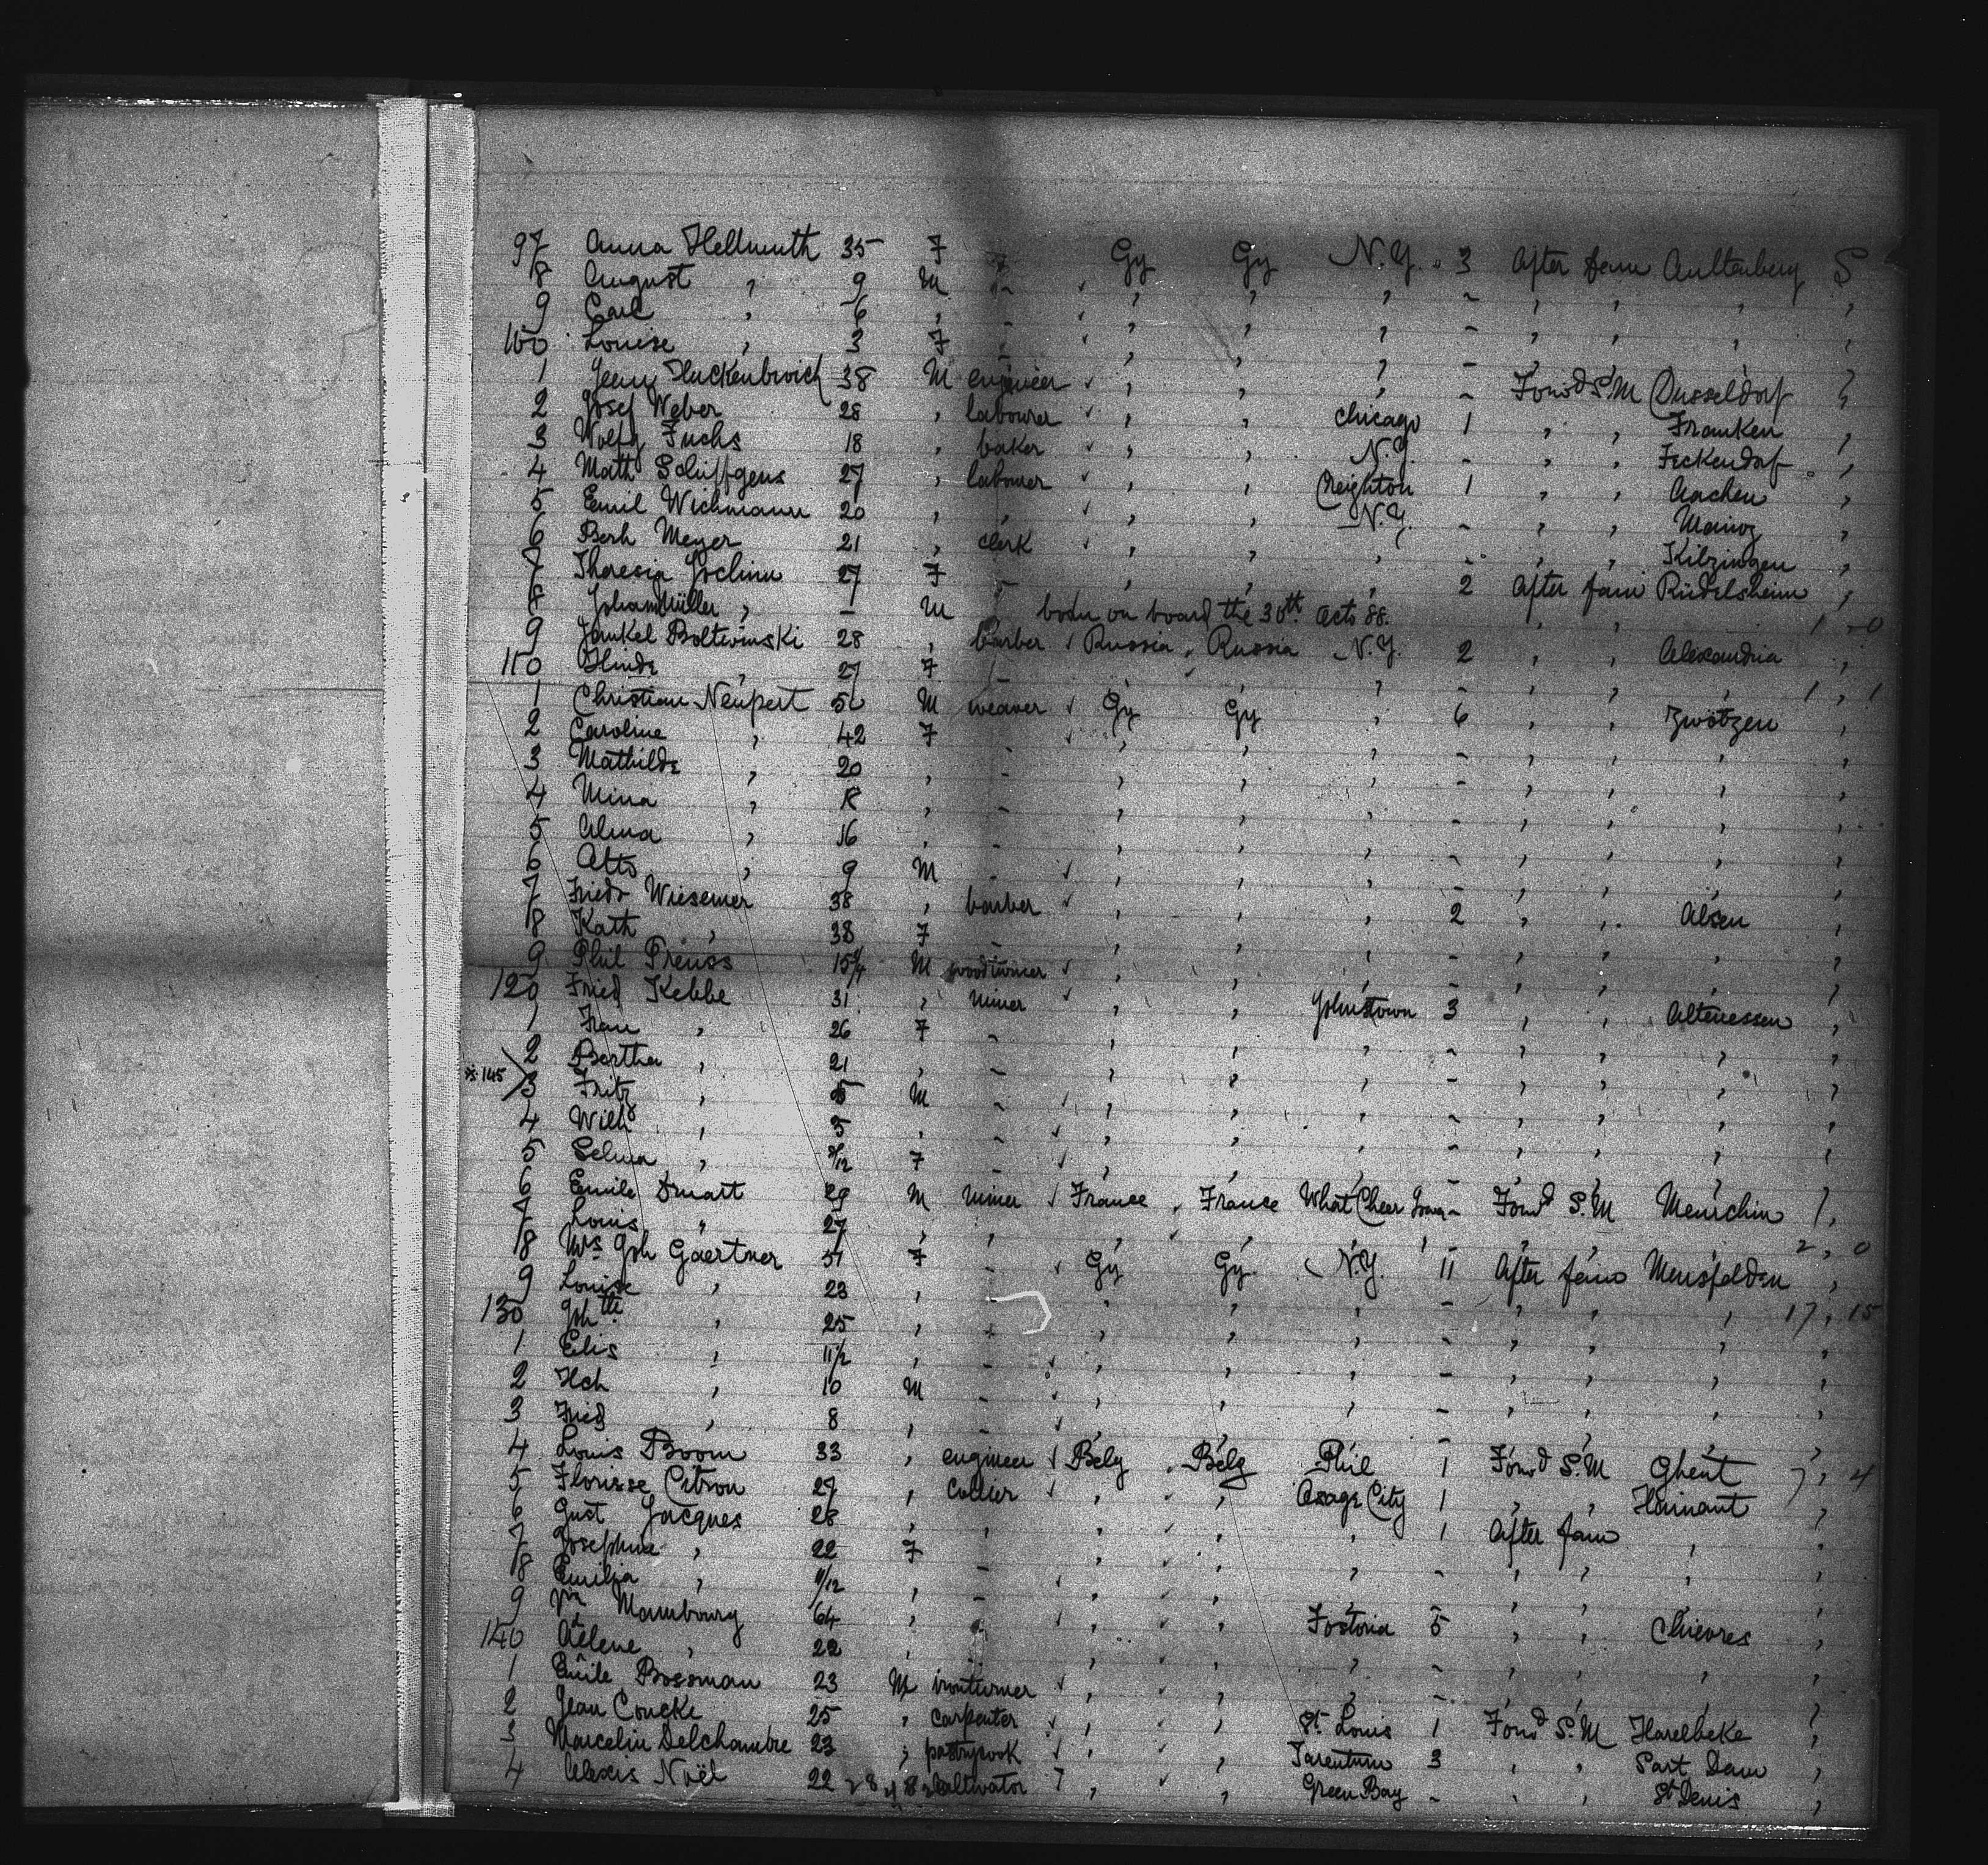 97 Anna Hellmuth 35 F - Gy Gy N.Y. 3 After fam Aultenberg S
8 August " 9 M - " " " - " " " "
9 Carl " 6 " - " " " - " " " "
100 Louise " 3 F - " " " - " " " "
1 Huckenbroich 38 M engineer " " " - Forwd S.M Dusseldorf "
2 Josef Weber 28 " labourer " " Chicago 1 " " Franken "
3 Wolfg Fuchs 18 " baker " " N.Y. - " " "
4 Math Schiffgens 27 " labourer " " Creighton 1 " " Aachen "
5 Emil Wichmann 20 " " " " N.Y. - " " Mainz "
6 Berh Meyer 21 " clerk " " " - " " Kitzingen "
7 Theresia 27 F - " " " 2 After fam Rüdelsheim "
8 Johann Müller " - M born on board the 30th Octo 88. " " 1 - 0
9 Jankel Boltwinski 28 " barber Russia Russia N.Y. 2 " " Alexandria "
110 Hinde " 27 F - " " " - " " " 1 , 1
1 Christian Neupert 50 M weaver Gy Gy " 6 " " Zwötzen "
2 Caroline " 42 F - " " " - " " " "
3 Mathilde " 20 " - " " " - " " " "
4 Mina " 18 " - " " " - " " " "
5 Alma " 16 " - " " " - " " " "
6 Otto " 9 M - " " " - " " " "
7 Friedr Wiesemer 38 " barber " " " 2 " " Alsen "
8 Kath " 38 F - " " " - " " " "
9 Phil Preuss M woodturner " " " - " " " "
120 Fried Kebbe 31 " miner " " Johnstown 3 " " Altenessen "
1 Frau " 26 F - " " " - " " " "
2 Bertha " 21 " - " " " - " " " "
※145 3 Fritz " 5 M - " " " - " " " "
4 Wilh " 3 " - " " " - " " " "
5 Selma " F - " " " - " " " "
6 Emile Dmart 29 M miner France France What Cheer Iowa - Forwd S.M Meurchin 1,
7 Louis " 27 " " " " " - " " " 2, 0
8 Mrs Joh Gaertner 51 F - Gy Gy N.Y. 11 After fam Mensfelden "
9 Louise " 23 " - " " " - " " " 17, 15
130 Joh tte " 25 " - " " " - " " " "
1 Elis " 11½ " - " " " - " " " "
2 Hch " 10 M - " " " - " " " "
3 Fried " 8 " - " " " - " " " "
4 Louis Boom 33 " engineer Belg Belg Phil 1 Forwd S.M Ghent 7, 4
5 Florisse Citron 27 " Collier " " Osage City 1 " " Hainant "
6 Gust Jacques 28 " " " " " 1 After fam " "
7 Josephine " 22 F - " " " - " " " "
8 Emilia " 11/12 " - " " " - " " " "
9 Mambourg 64 " - " " Fostoria 5 " " Chievres "
140 Aelene " 22 " - " " " - " " " "
1 Emile Bossman 23 M ironturner " " " - " " " "
2 Jean Coucke 25 " carpenter " " St. Louis 1 Forwd S.M Harelbeke "
3 Marcelin Delchambre 23 " pastrycook " " Tarentum 3 " " Sart Dam "
4 Alexis Noël 22 " cultivator " " Green Bay - " " St Denis "